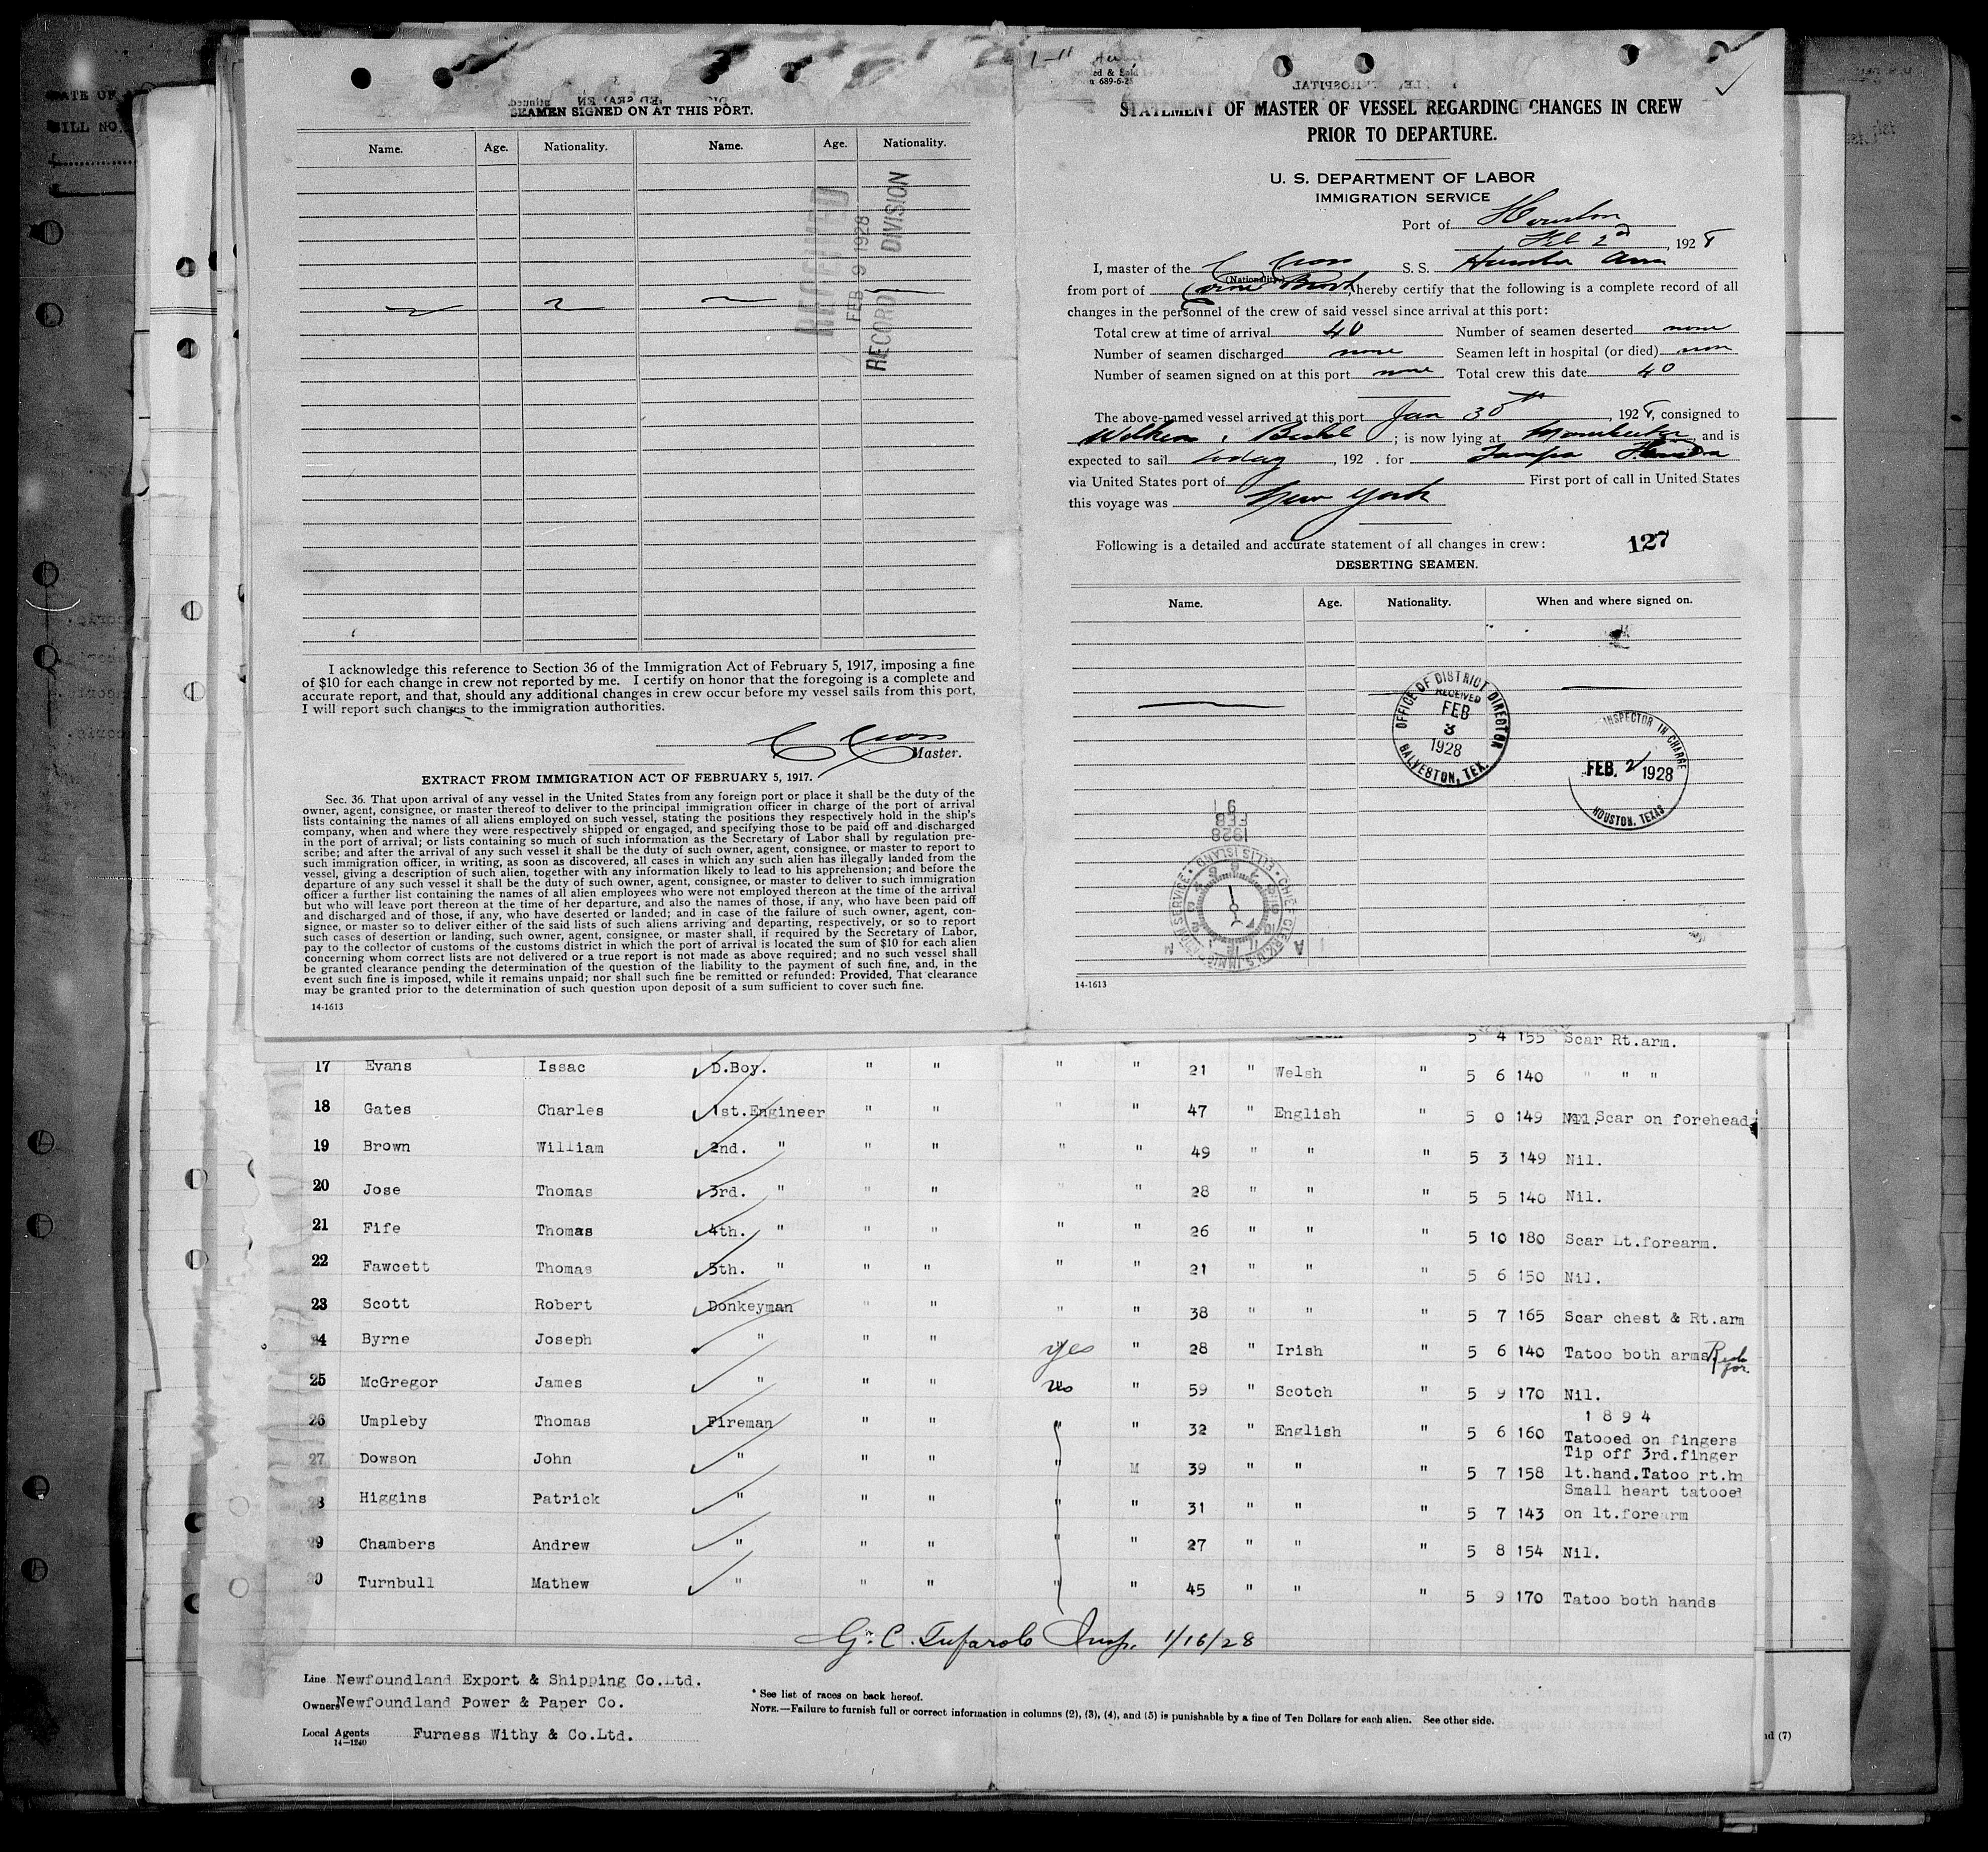 SEAMEN SIGNED ON AT THIS PORT.
Name. Age. Nationality. Name. Age. Nationality.
RECEIVED
FEB 9 1928
RECORD DIVISION
I acknowledge this reference to Section 36 of the Immigration Act of February 5, 1917, imposing a fine
of $10 for each change in crew not reported by me. I certify on honor that the foregoing is a complete and
accurate report, and that, should any additional changes in crew occur before my vessel sails from this port,
I will report such changes to the immigration authorities.
C Cross
Master.
EXTRACT FROM IMMIGRATION ACT OF FEBRUARY 5, 1917.
Sec. 36. That upon arrival of any vessel in the United States from any foreign port or place it shall be the duty of the
owner, agent, consignee, or master thereof to deliver to the principal immigration officer in charge of the port of arrival
lists containing the names of all aliens employed on such vessel, stating the positions they respectively hold in the ship's
company, when and where they were respectively shipped or engaged, and specifying those to be paid off and discharged
in the port of arrival; or lists containing so much of such information as the Secretary of Labor shall by regulation pre-
scribe; and after the arrival of any such vessel it shall be the duty of such owner, agent, consignee, or master to report to
such immigration officer, in writing, as soon as discovered, all cases in which any such alien has illegally landed from the
vessel, giving a description of such alien, together with any information likely to lead to his apprehension; and before the
departure of any such vessel it shall be the duty of such owner, agent, consignee, or master to deliver to such immigration
officer a further list containing the names of all alien employees who were not employed thereon at the time of the arrival
but who will leave port thereon at the time of her departure, and also the names of those, if any, who have been paid off
and discharged and of those, if any, who have deserted or landed; and in case of the failure of such owner, agent, con-
signee, or master so to deliver either of the said lists of such aliens arriving and departing, respectively, or so to report
such cases of desertion or landing, such owner, agent, consignee, or master shall, if required by the Secretary of Labor,
pay to the collector of customs of the customs district in which the port of arrival is located the sum of $10 for each alien
concerning whom correct lists are not delivered or a true report is not made as above required; and no such vessel shall
be granted clearance pending the determination of the question of the liability to the payment of such fine, and, in the
event such fine is imposed, while it remains unpaid; nor shall such fine be remitted or refunded: Provided, That clearance
may be granted prior to the determination of such question upon deposit of a sum sufficient to cover such fine.
14-1613
STATEMENT OF MASTER OF VESSEL REGARDING CHANGES IN CREW
PRIOR TO DEPARTURE.
U. S. DEPARTMENT OF LABOR
IMMIGRATION SERVICE
Port of Houston
Feb 2nd, 1928
I, master of the C Cross S. S. Humber Arm
(Nationality)
from port of Corner Brook, hereby certify that the following is a complete record of all
changes in the personnel of the crew of said vessel since arrival at this port:
Total crew at time of arrival 40 Number of seamen deserted none
Number of seamen discharged none Seamen left in hospital (or died) non
Number of seamen signed on at this port none Total crew this date 40
The above-named vessel arrived at this port Jan 30th, 1928, consigned to
Wilkens & ; is now lying at Manchester, and is
expected to sail today, 192 . for Tampa Florida
via United States port of First port of call in United States
this voyage was New York
Following is a detailed and accurate statement of all changes in crew: 127
DESERTING SEAMEN.
Name. Age. Nationality. When and where signed on.
OFFICE OF DISTRICT DIRECTOR
RECEIVED
FEB
3
1928
GALVESTON, TEX.
INSPECTOR IN CHARGE
FEB. 2 1928
HOUSTON, TEXAS
1928
FEB
9
14-1613
5 4 155 Scar Rt.arm.
17 Evans Issac D.Boy. " " " " 21 " Welsh " 5 6 140 " " "
18 Gates Charles 1st.Engineer " " " " 47 " English " 5 0 149 Scar on forehead
19 Brown William 2nd. " " " " " 49 " " " 5 3 149 Nil.
20 Jose Thomas 3rd. " " " " " 28 " " " 5 5 140 Nil.
21 Fife Thomas 4th. " " " " " 26 " " " 5 10 180 Scar Lt.forearm.
22 Fawcett Thomas 5th. " " " " " 21 " " " 5 6 150 Nil.
23 Scott Robert Donkeyman " " " " 38 " " " 5 7 165 Scar chest & Rt.arm
24 Byrne Joseph " " " yes " 28 " Irish " 5 6 140 Tatoo both arms
25 McGregor James " " " no " 59 " Scotch " 5 9 170 Nil.
26 Umpleby Thomas Fireman " " " " 32 " English " 5 6 160 1 8 9 4
Tatooed on fingers
27 Dowson John " " " " M 39 " " " 5 7 158 Tip off 3rd.finger
lt.hand.Tatoo rt.hn
28 Higgins Patrick " " " " " 31 " " " 5 7 143 Small heart tatooed
on lt.forearm
29 Chambers Andrew " " " " " 27 " " " 5 8 154 Nil.
30 Turnbull Mathew " " " " " 45 " " " 5 9 170 Tatoo both hands
G. C. Tufarolo Insp. 1/16/28
Line Newfoundland Export & Shipping Co.Ltd.
Owners Newfoundland Power & Paper Co.
Local Agents Furness Withy & Co.Ltd.
14-1240
* See list of races on back hereof.
NOTE.—Failure to furnish full or correct information in columns (2), (3), (4), and (5) is punishable by a fine of Ten Dollars for each alien. See other side.
nd (7)